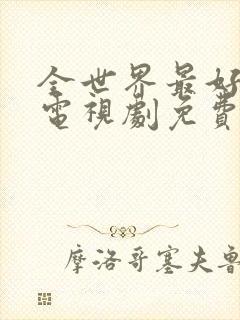 全世界最好
電視劇免費
摩洛哥塞夫魯